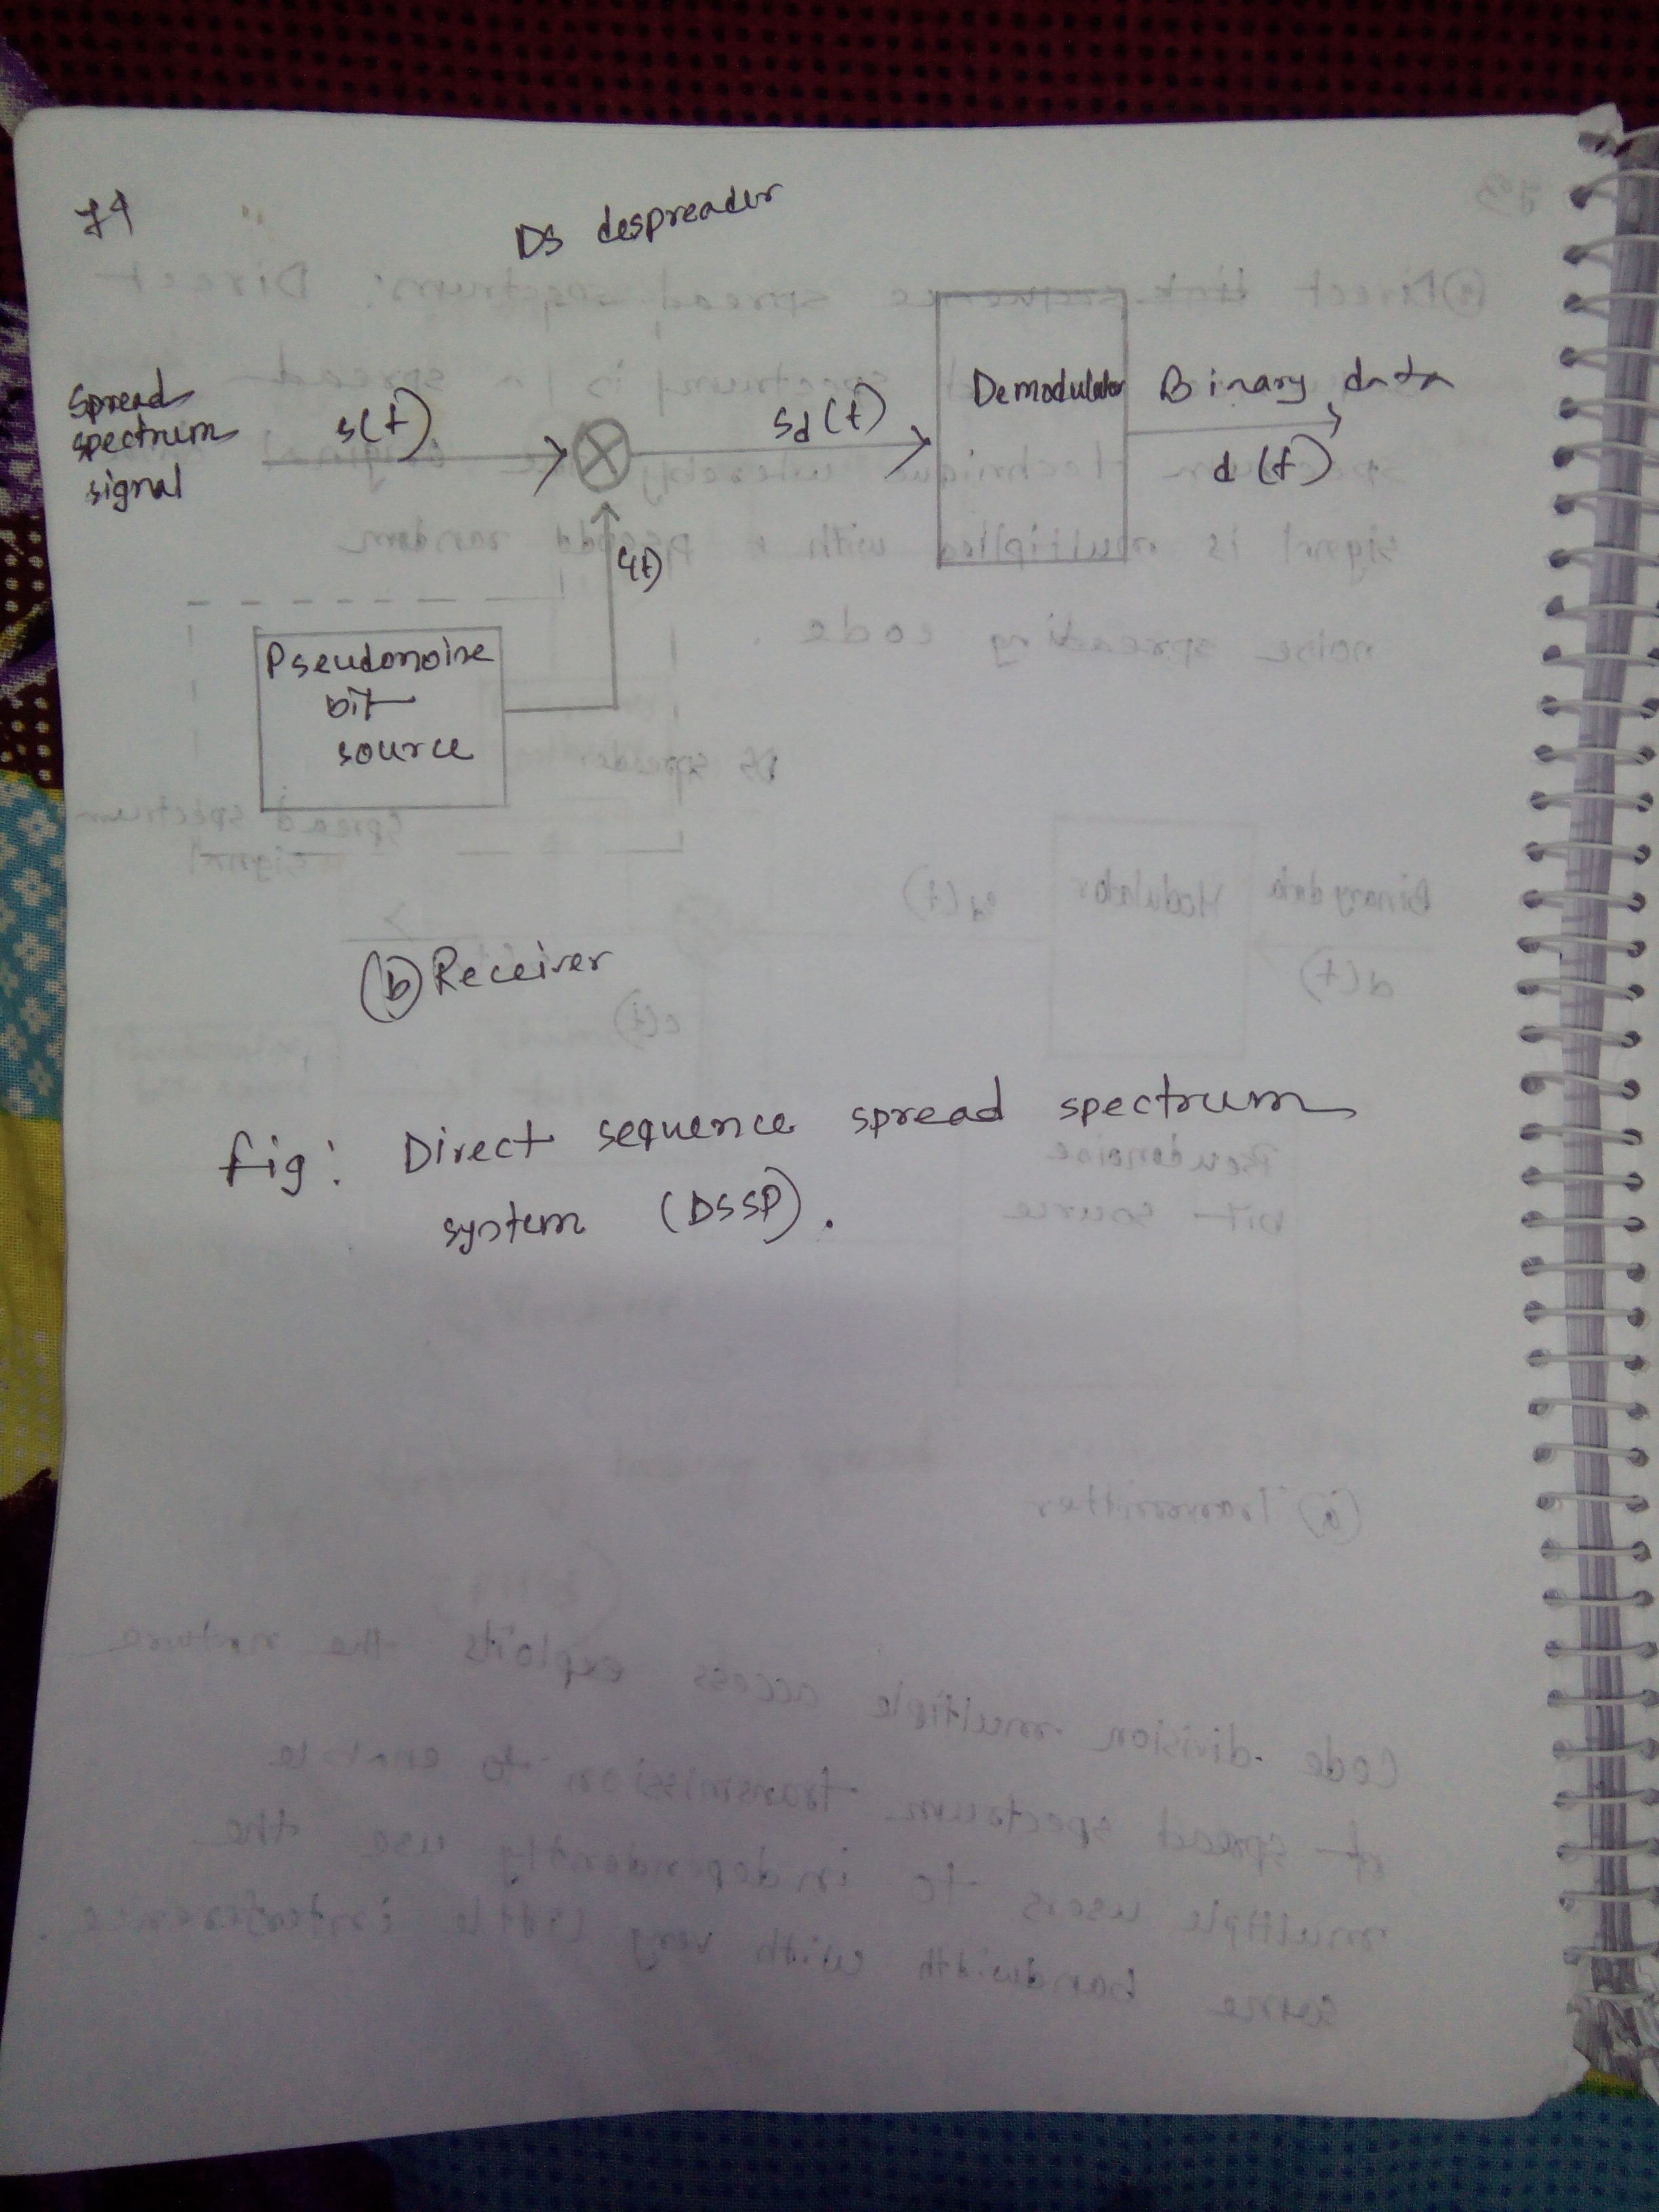 74
DS despreader
Spread
spectrum
signal
s(t)
sd(t)
Demodulator
Binary data
d(t)
c(t)
Pseudonoise
bit
source
(b) Receiver
fig: Direct sequence spread spectrum
system (DSSP).